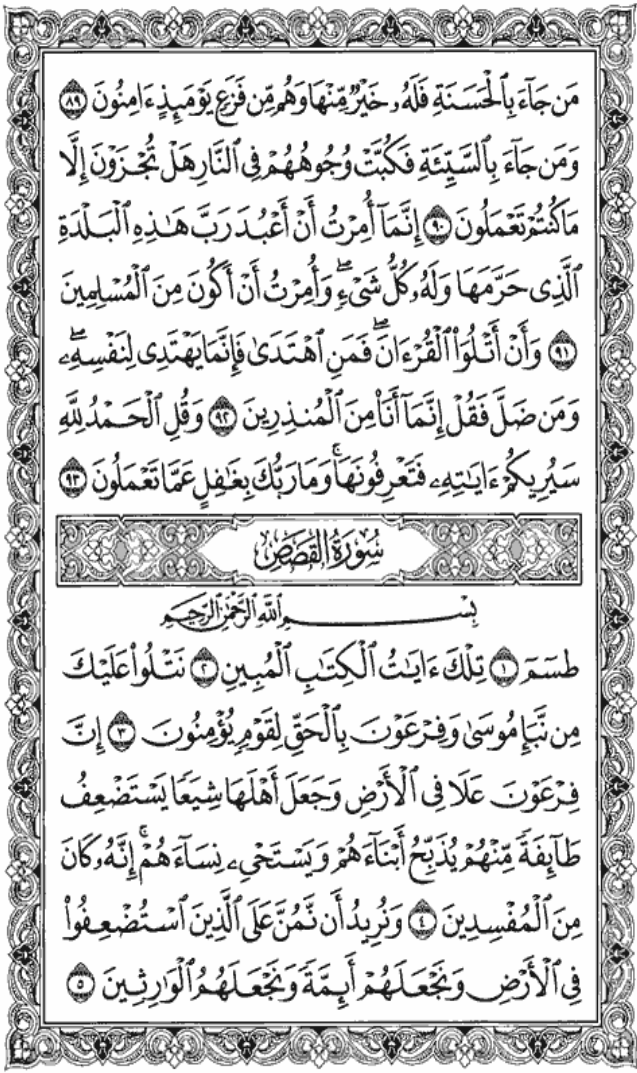 مَن جَآءَ بِٱلْحَسَنَةِ فَلَهُۥ خَيْرٌ مِّنْهَا وَهُم مِّن فَزَعٍ يَوْمَئِذٍ ءَامِنُونَ ٨٩
وَمَن جَآءَ بِٱلسَّيِّئَةِ فَكُبَّتْ وُجُوهُهُمْ فِى ٱلنَّارِ هَلْ تُجْزَوْنَ إِلَّا
مَا كُنتُمْ تَعْمَلُونَ ٩٠ إِنَّمَآ أُمِرْتُ أَنْ أَعْبُدَ رَبَّ هَٰذِهِ ٱلْبَلْدَةِ
ٱلَّذِى حَرَّمَهَا وَلَهُۥ كُلُّ شَىْءٍ ۖ وَأُمِرْتُ أَنْ أَكُونَ مِنَ ٱلْمُسْلِمِينَ
٩١ وَأَنْ أَتْلُوَا۟ ٱلْقُرْءَانَ ۖ فَمَنِ ٱهْتَدَىٰ فَإِنَّمَا يَهْتَدِى لِنَفْسِهِۦ ۖ
وَمَن ضَلَّ فَقُلْ إِنَّمَآ أَنَا۠ مِنَ ٱلْمُنذِرِينَ ٩٢ وَقُلِ ٱلْحَمْدُ لِلَّهِ
سَيُرِيكُمْ ءَايَٰتِهِۦ فَتَعْرِفُونَهَا ۚ وَمَا رَبُّكَ بِغَٰفِلٍ عَمَّا تَعْمَلُونَ ٩٣
سُورَةُ القَصَصِ
بِسْمِ ٱللَّهِ ٱلرَّحْمَٰنِ ٱلرَّحِيمِ
طسٓمٓ ١ تِلْكَ ءَايَٰتُ ٱلْكِتَٰبِ ٱلْمُبِينِ ٢ نَتْلُوا۟ عَلَيْكَ
مِن نَّبَإِ مُوسَىٰ وَفِرْعَوْنَ بِٱلْحَقِّ لِقَوْمٍ يُؤْمِنُونَ ٣ إِنَّ
فِرْعَوْنَ عَلَا فِى ٱلْأَرْضِ وَجَعَلَ أَهْلَهَا شِيَعًا يَسْتَضْعِفُ
طَآئِفَةً مِّنْهُمْ يُذَبِّحُ أَبْنَآءَهُمْ وَيَسْتَحْىِۦ نِسَآءَهُمْ ۚ إِنَّهُۥ كَانَ
مِنَ ٱلْمُفْسِدِينَ ٤ وَنُرِيدُ أَن نَّمُنَّ عَلَى ٱلَّذِينَ ٱسْتُضْعِفُوا۟
فِى ٱلْأَرْضِ وَنَجْعَلَهُمْ أَئِمَّةً وَنَجْعَلَهُمُ ٱلْوَٰرِثِينَ ٥